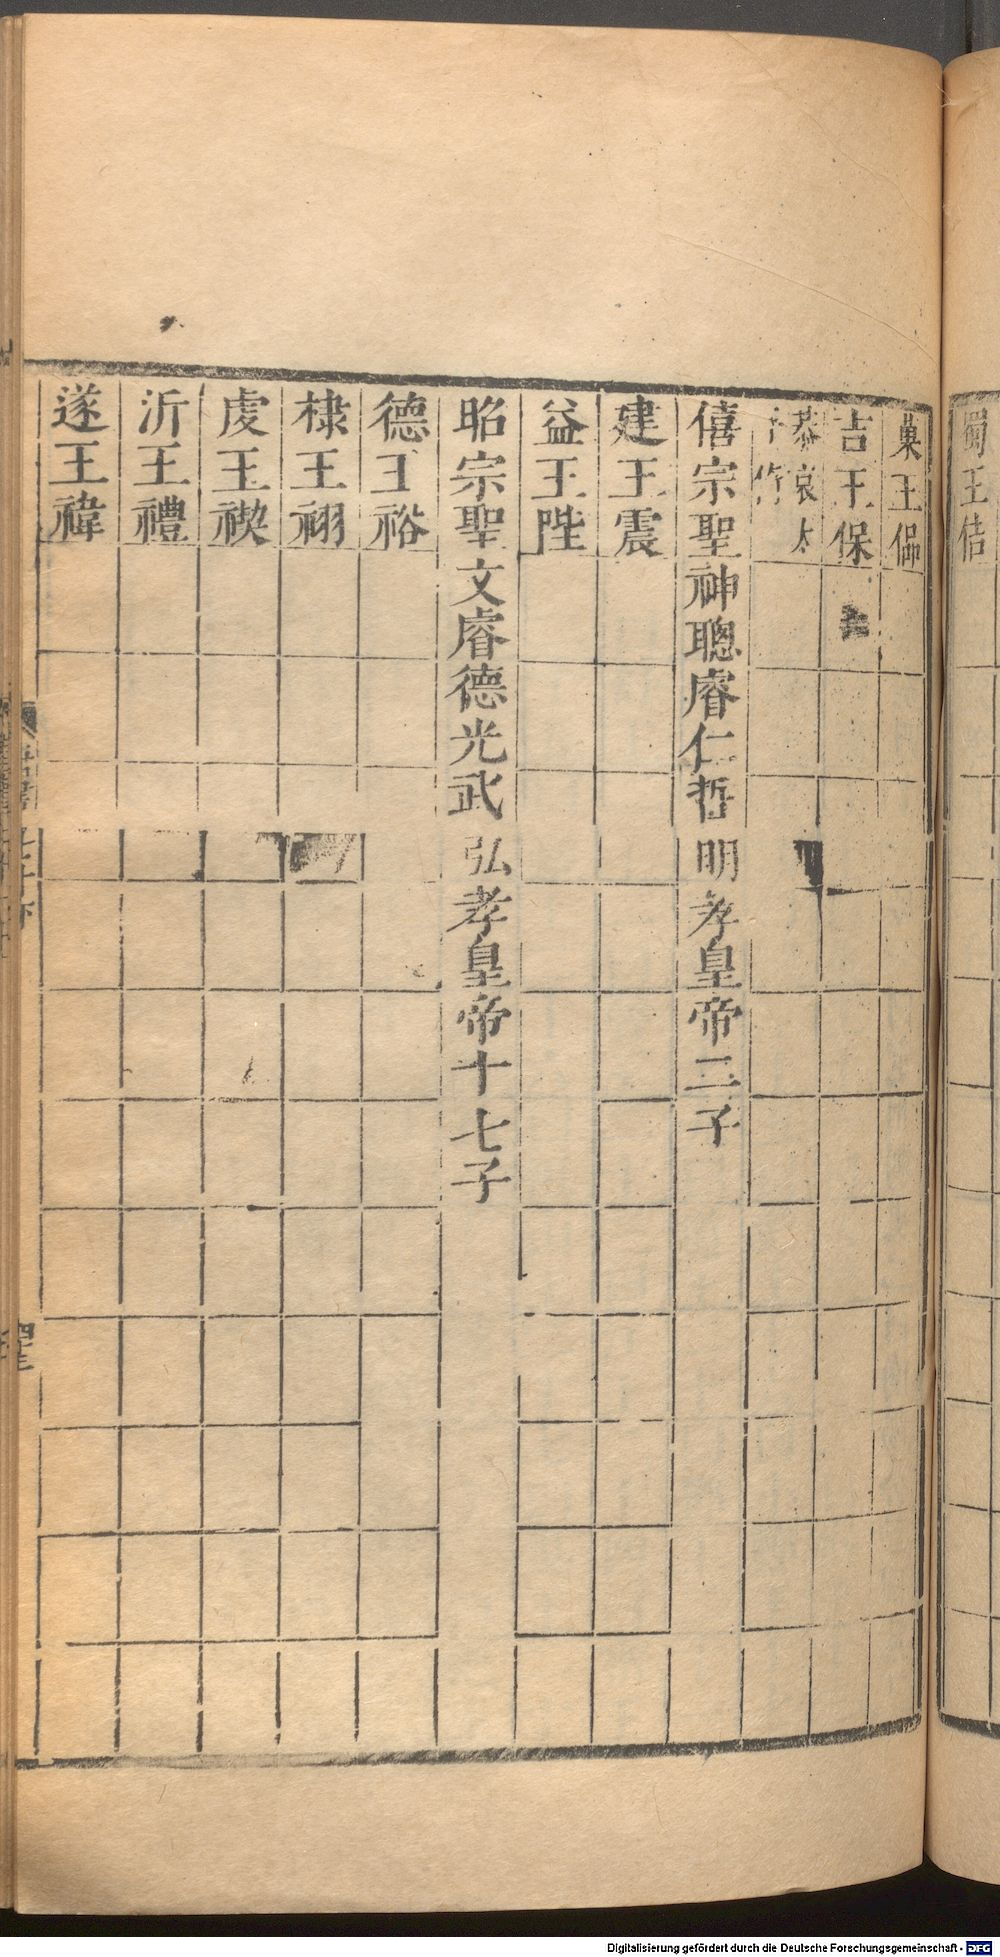 蜀王佶
王偘
吉王保
恭哀太
子
僖宗聖神聰睿仁哲明孝皇帝二子
建王震
益王陞
昭宗聖文睿德光武弘孝皇帝十七子
德王裕
棣王祤
虔王禊
沂王禋
遂王禕
Digitalisierung gefördert durch die Deutsche Forschungsgemeinschaft - DFG